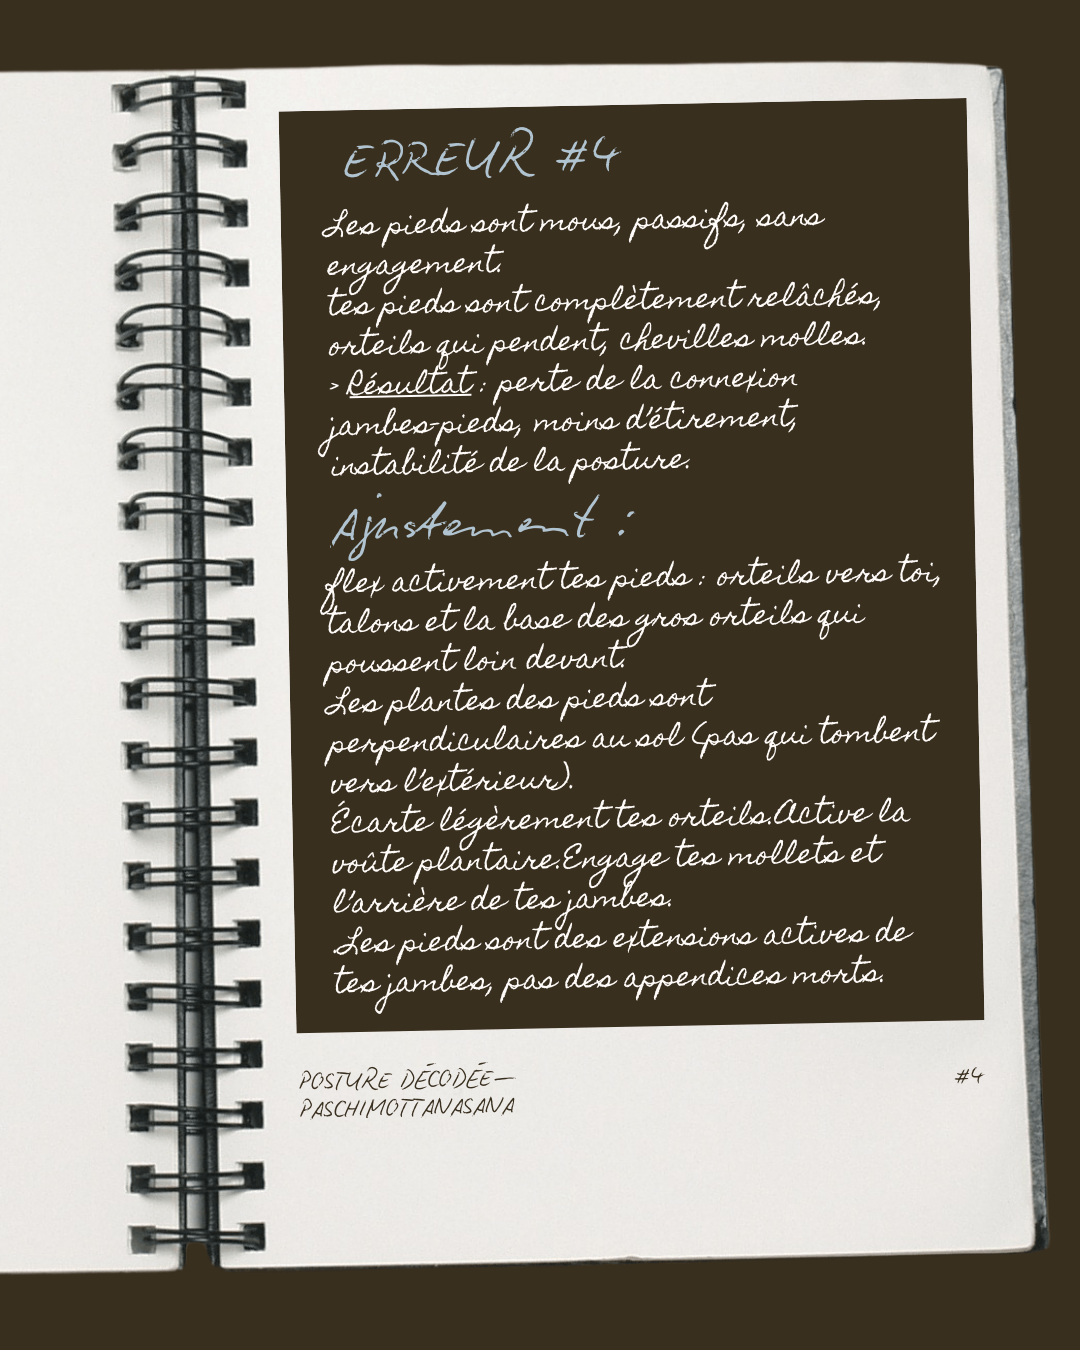 ERREUR #4
Les pieds sont mous, passifs, sans
engagement.
tes pieds sont complètement relâchés,
orteils qui pendent, chevilles molles.
> Résultat : perte de la connexion
jambes-pieds, moins d'étirement,
instabilité de la posture.
Ajustement :
flex activement tes pieds : orteils vers toi,
talons et la base des gros orteils qui
poussent loin devant.
Les plantes des pieds sont
perpendiculaires au sol (pas qui tombent
vers l'extérieur).
Écarte légèrement tes orteils.Active la
voûte plantaire.Engage tes mollets et
l'arrière de tes jambes.
.Les pieds sont des extensions actives de
tes jambes, pas des appendices morts.
POSTURE DÉCODÉE—
PASCHIMOTTANASANA
#4